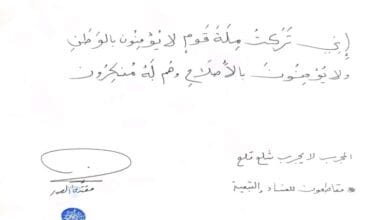 إني تركتُ مِلَةَ قَومٍ لا يُؤمِنُون بالوَطَنِ
ولا يُؤمِنُونَ بالأصلاحِ وهُم لَهُ مُنكِرُون
المجرب لا يجرب شلع قلع
مقاطعون للفساد والتبعية
مقتدى الصدر